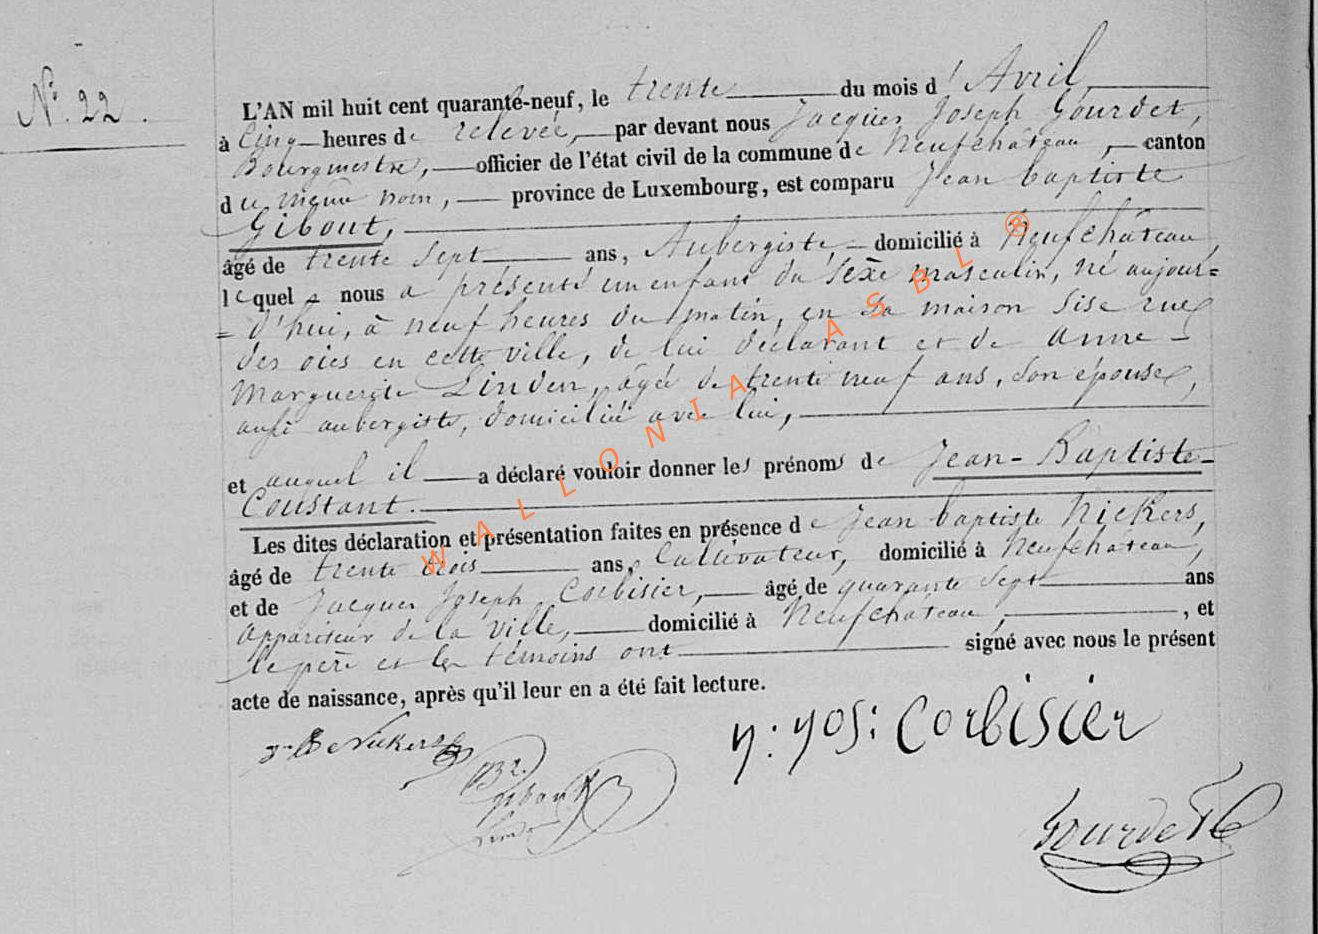 N° 22.
L'AN mil huit cent quarante-neuf, le trente du mois d'Avril
à Cinq heures de relevée, par devant nous Jacques Joseph Gourdet,
Bourgmestre, officier de l'état civil de la commune de Neufchâteau, canton
du même nom, province de Luxembourg, est comparu Jean baptiste
Gibout,
âgé de trente sept ans, Aubergiste, domicilié à Neufchâteau,
lequel nous a présenté un enfant du sexe masculin, né aujour=
=d'hui, à neuf heures du matin, en sa maison sise rue
des oies en cette ville, de lui déclarant et de anne-
Marguerite Linden, âgée de trente neuf ans, son épouse,
aussi aubergiste, domiciliée avec lui,
et auquel il a déclaré vouloir donner les prénoms de Jean-Baptiste-
Constant.
Les dites déclaration et présentation faites en présence de Jean baptiste Nickers,
âgé de trente trois ans, Cultivateur, domicilié à Neufchâteau,
et de Jacques Joseph Corbisier, âgé de quarante sept ans
appariteur de la ville, domicilié à Neufchâteau, , et
le père et les témoins ont signé avec nous le présent
acte de naissance, après qu'il leur en a été fait lecture.
Nickers
J: Jos: Corbisier
Gibout
Gourdet
WALLONIA ASBL ®